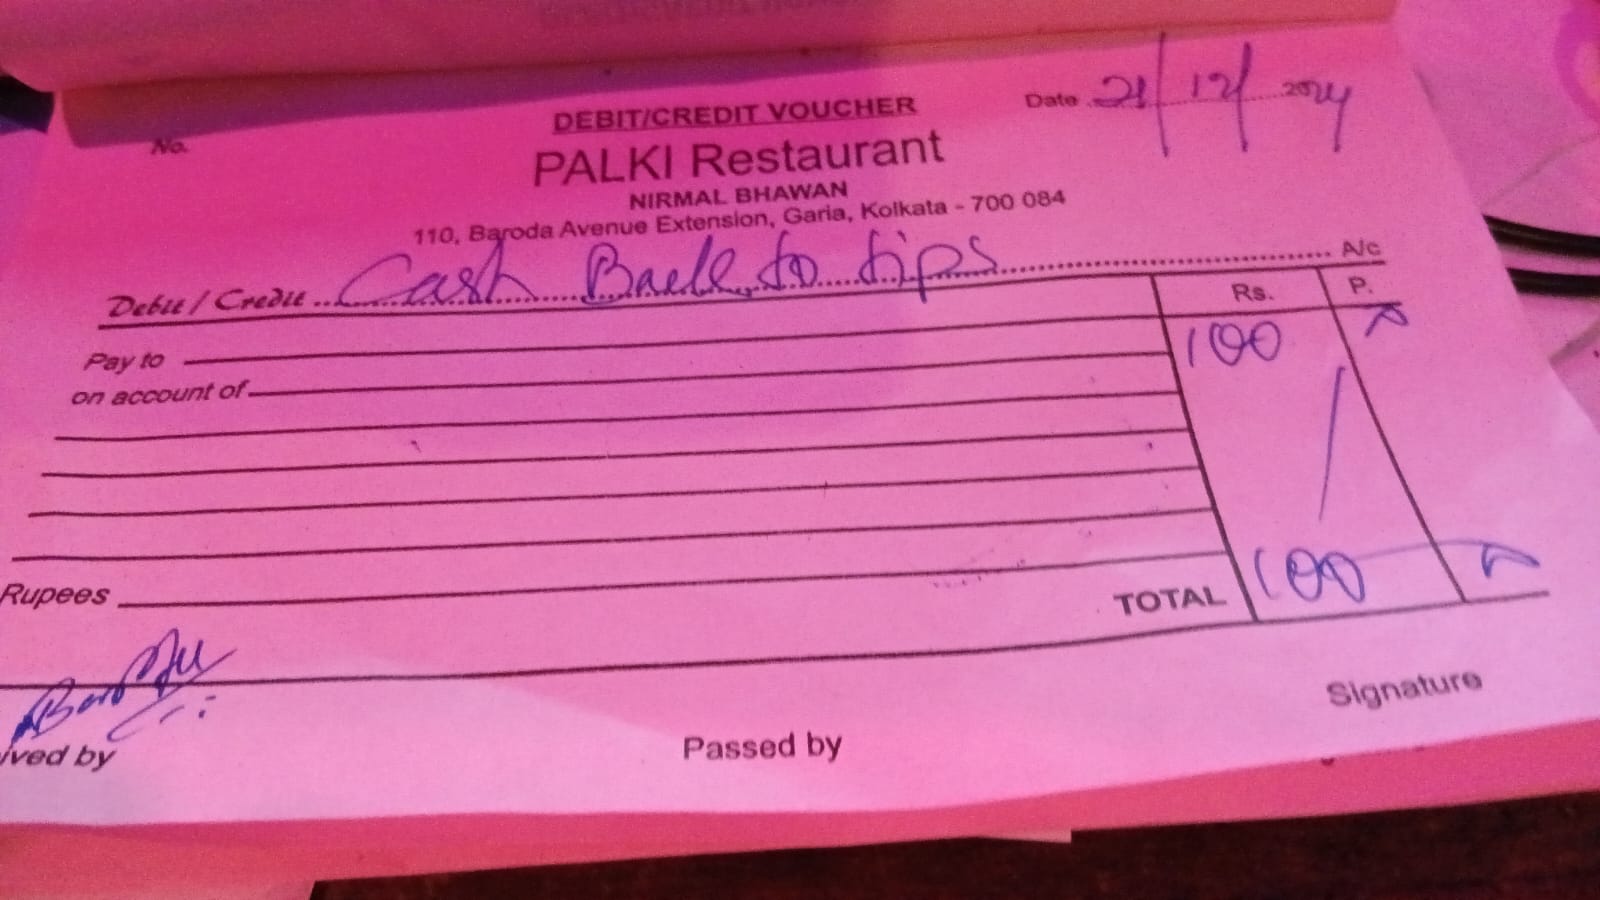 DEBIT/CREDIT VOUCHER
No.
Date 21/12/2024
PALKI Restaurant
NIRMAL BHAWAN
110, Baroda Avenue Extension, Garia, Kolkata - 700 084
Debit / Credit Cash Back to tips A/c
Rs. P.
Pay to 100
on account of
Rupees
TOTAL 100
ived by
Passed by
Signature